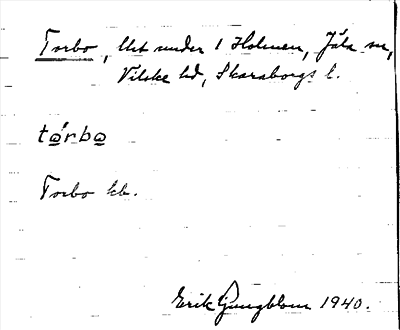 Torbo, lht under 1 Holmen, Jäla sn,
Vilske hd, Skaraborgs l.
tó̲rbo̲
Torbo kb.
Erik Ljungblom 1940.